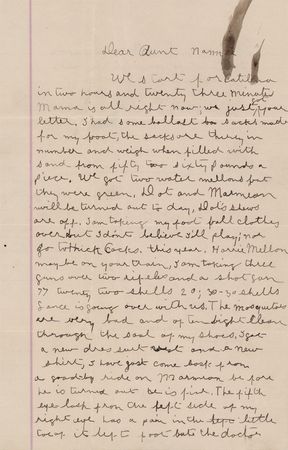 Dear Aunt Nannie
We start for Catilina
in two hours and twenty three minutes
Mama is all right now; we just got your
letter. I had some ballast ba sacks made
for my boat, the sacks are thirty in
number and weigh when filled with
sand from fifty too sixty pounds a
piece. We got two water mellons but
they were green, Dot and Marmion
will be turned out to day, Dot's shoes
are off. I am taking my foot ball clothes
over but I dont believe I'll play; nor
go to this year. Harrie Mellon
may be on your train, I am taking three
guns over two rifels and a shot gun
77 twenty two shells 20; 30-30 shells
Lance is going over with us. The mosquitoes
are very bad and often bight clean
through the soal of my shoes, I got
a new dres suit and a new
shirt, I have just come back from
a goodby ride on Marmion be fore
he is turned out he is fine. The fifth
eye lash from the left side of my
right eye has a pain in the little
toe of it left foot bats the doctor